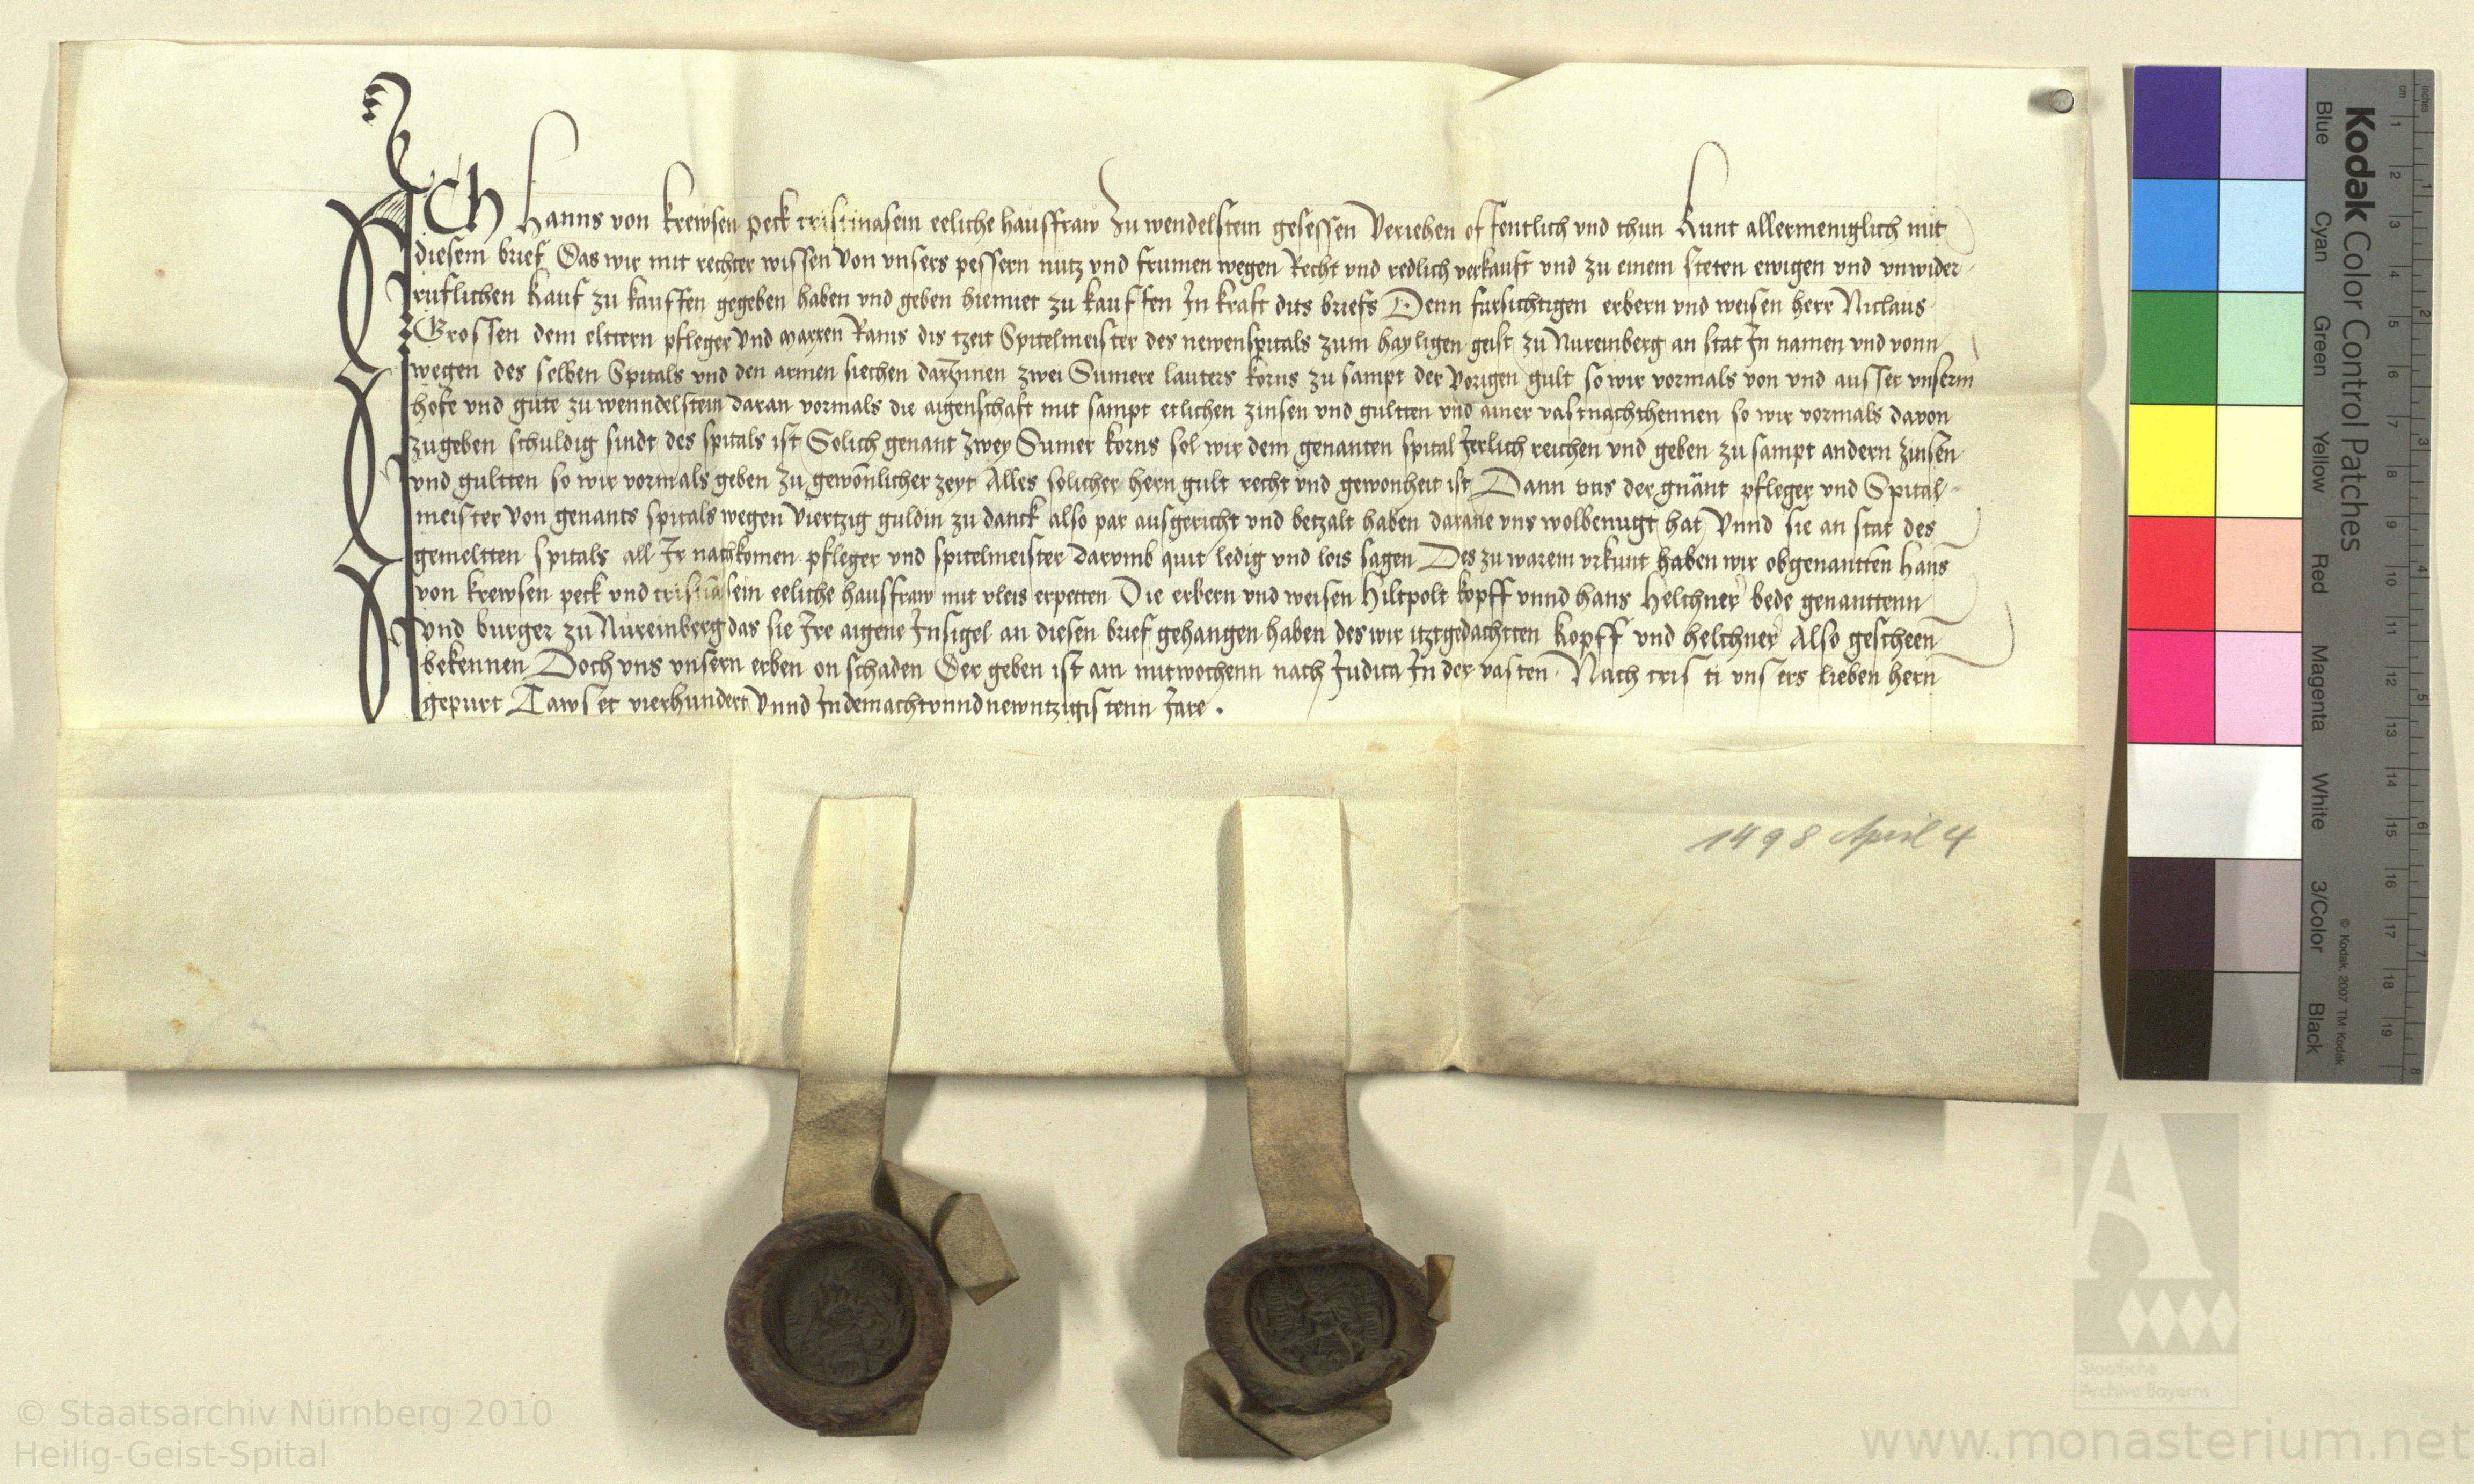 ICh Hanns von krewsen peck cristina sein eeliche hausfraw Zu wendelstein gesessen Veriehen offentlich vnd thun kunt allermeniglich mit
diesem brief Das wir mit rechter wissen von vnsers pessern nutz vnd frumen wegen Recht vnd redlich verkauft vnd zu einem steten ewigen vnd vnwider-
ruflichen kauf zu kauffen gegeben haben vnd geben hiemit zu kauffen In kraft dits briefs Denn fursichtigen erbern vnd weisen herr Niclaus
Grossen dem elttern pfleger vnd marxen Rams dis tzeit Spitelmeister des newenspitals zum hayligen geist zu Nuremberg an stat In namen vnd vonn
wegen des selben Spitals vnd den armen siechen darJnnen zwei Sumere lauters korns zu sampt der vorigen gult so wir vormals von vnd ausser vnserm
hofe vnd gute zu wenndelstein daran vormals die aigenschaft mit sampt etlichen zinsen vnd gultten vnd ainer vastnachthennen so wir vormals davon
zugeben schuldig sindt des spitals ist Solich genant zwey Sumer korns sol wir dem genanten spital Jerlich reichen vnd geben zu sampt andern zinsen
vnd gultten so wir vormals geben zu gewonlicher zeyt Alles solicher hern gult recht vnd gewonheit ist Dann vns der gnant pfleger vnd Spital-
meister von genants spitals wegen viertzig guldin zu danck also par ausgericht vnd betzalt haben darane vns wolbenugt hat Vnnd sie an stat des
gemeltten spitals all Jr nachkomen pfleger vnd spitelmeister darvmb quit ledig vnd lois sagen Des zu warem vrkunt haben wir obgenantten Hans
von krewsen peck vnd cristina sein eeliche hausfraw mit vleis erpetten Die erbern vnd weisen Hiltpolt kopff vnnd hans Helchner bede genanttenn
vnd burger zu Nuremberg das sie Jre aigene Jnsigel an diesen brief gehangen haben des wir itztgedachtten kopff vnd helchner Also gescheen
bekennen Doch vns vnsern erben on schaden Der geben ist am mitwochenn nach Judica In der vasten Nach cristi vnsers lieben hern
gepurt Tawset vierhundert Vnnd Jndemachtvnndnewntzigistenn Jare .
1498 April 4
Kodak Color Control Patches
© Kodak, 2007 TM: Kodak
Blue Cyan Green Yellow Red Magenta White 3/Color Black
inches 1 2 3 4 5 6 7 8
cm 1 2 3 4 5 6 7 8 9 10 11 12 13 14 15 16 17 18 19
Staatliche
Archive Bayerns
© Staatsarchiv Nürnberg 2010
Heilig-Geist-Spital
www.monasterium.net